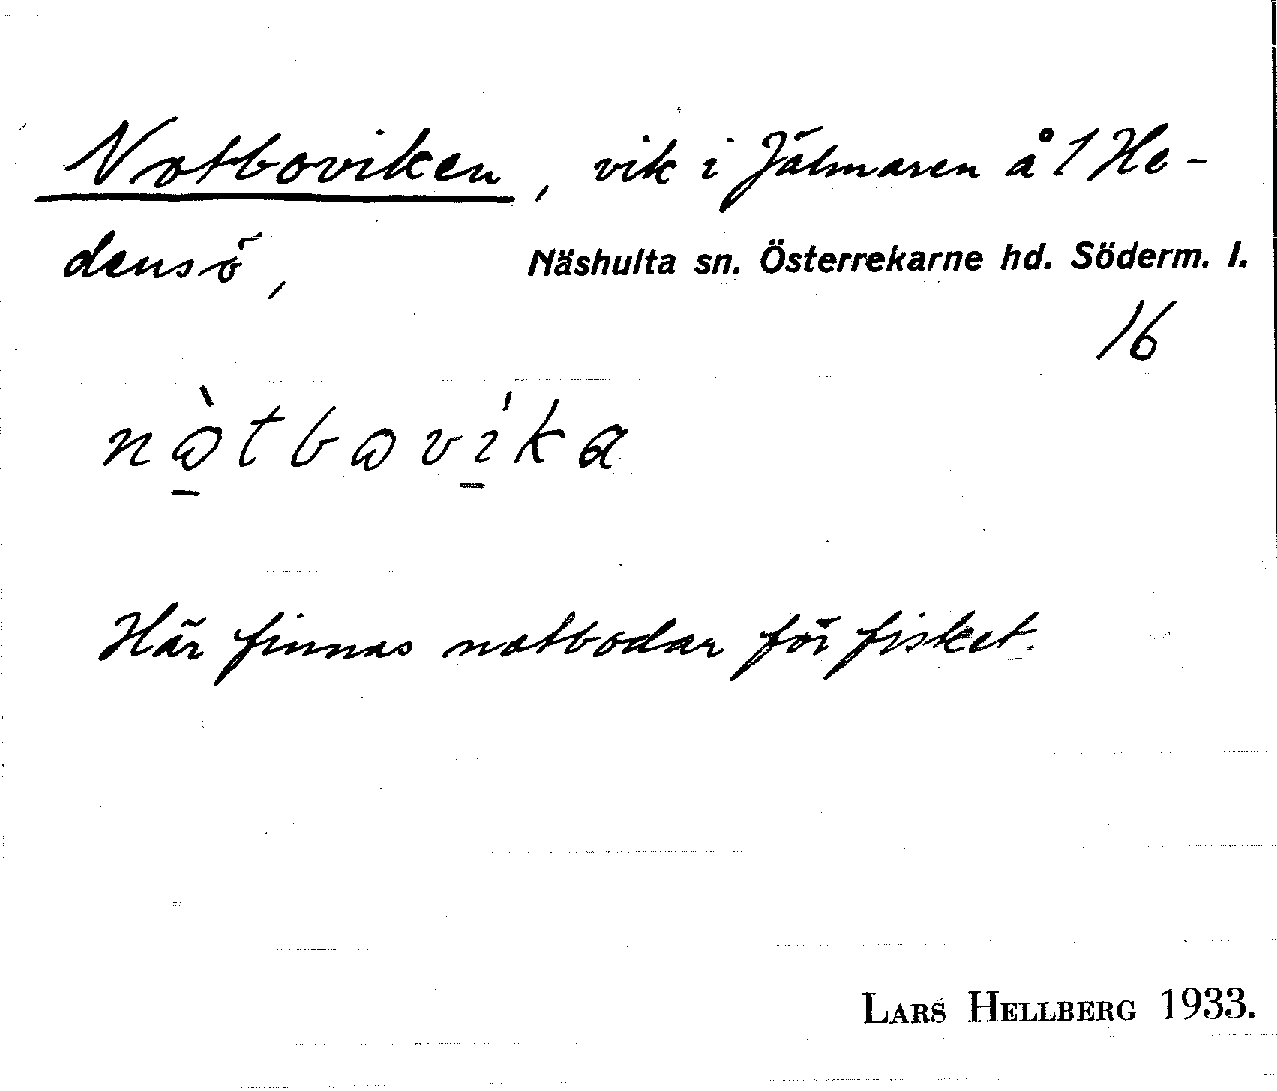 Notboviken, vik i Jälmaren å 1 He-
densö, Näshulta sn. Österrekarne hd. Söderm. l.
16
Här finnas notbodar för fisket.
LARS HELLBERG 1933.